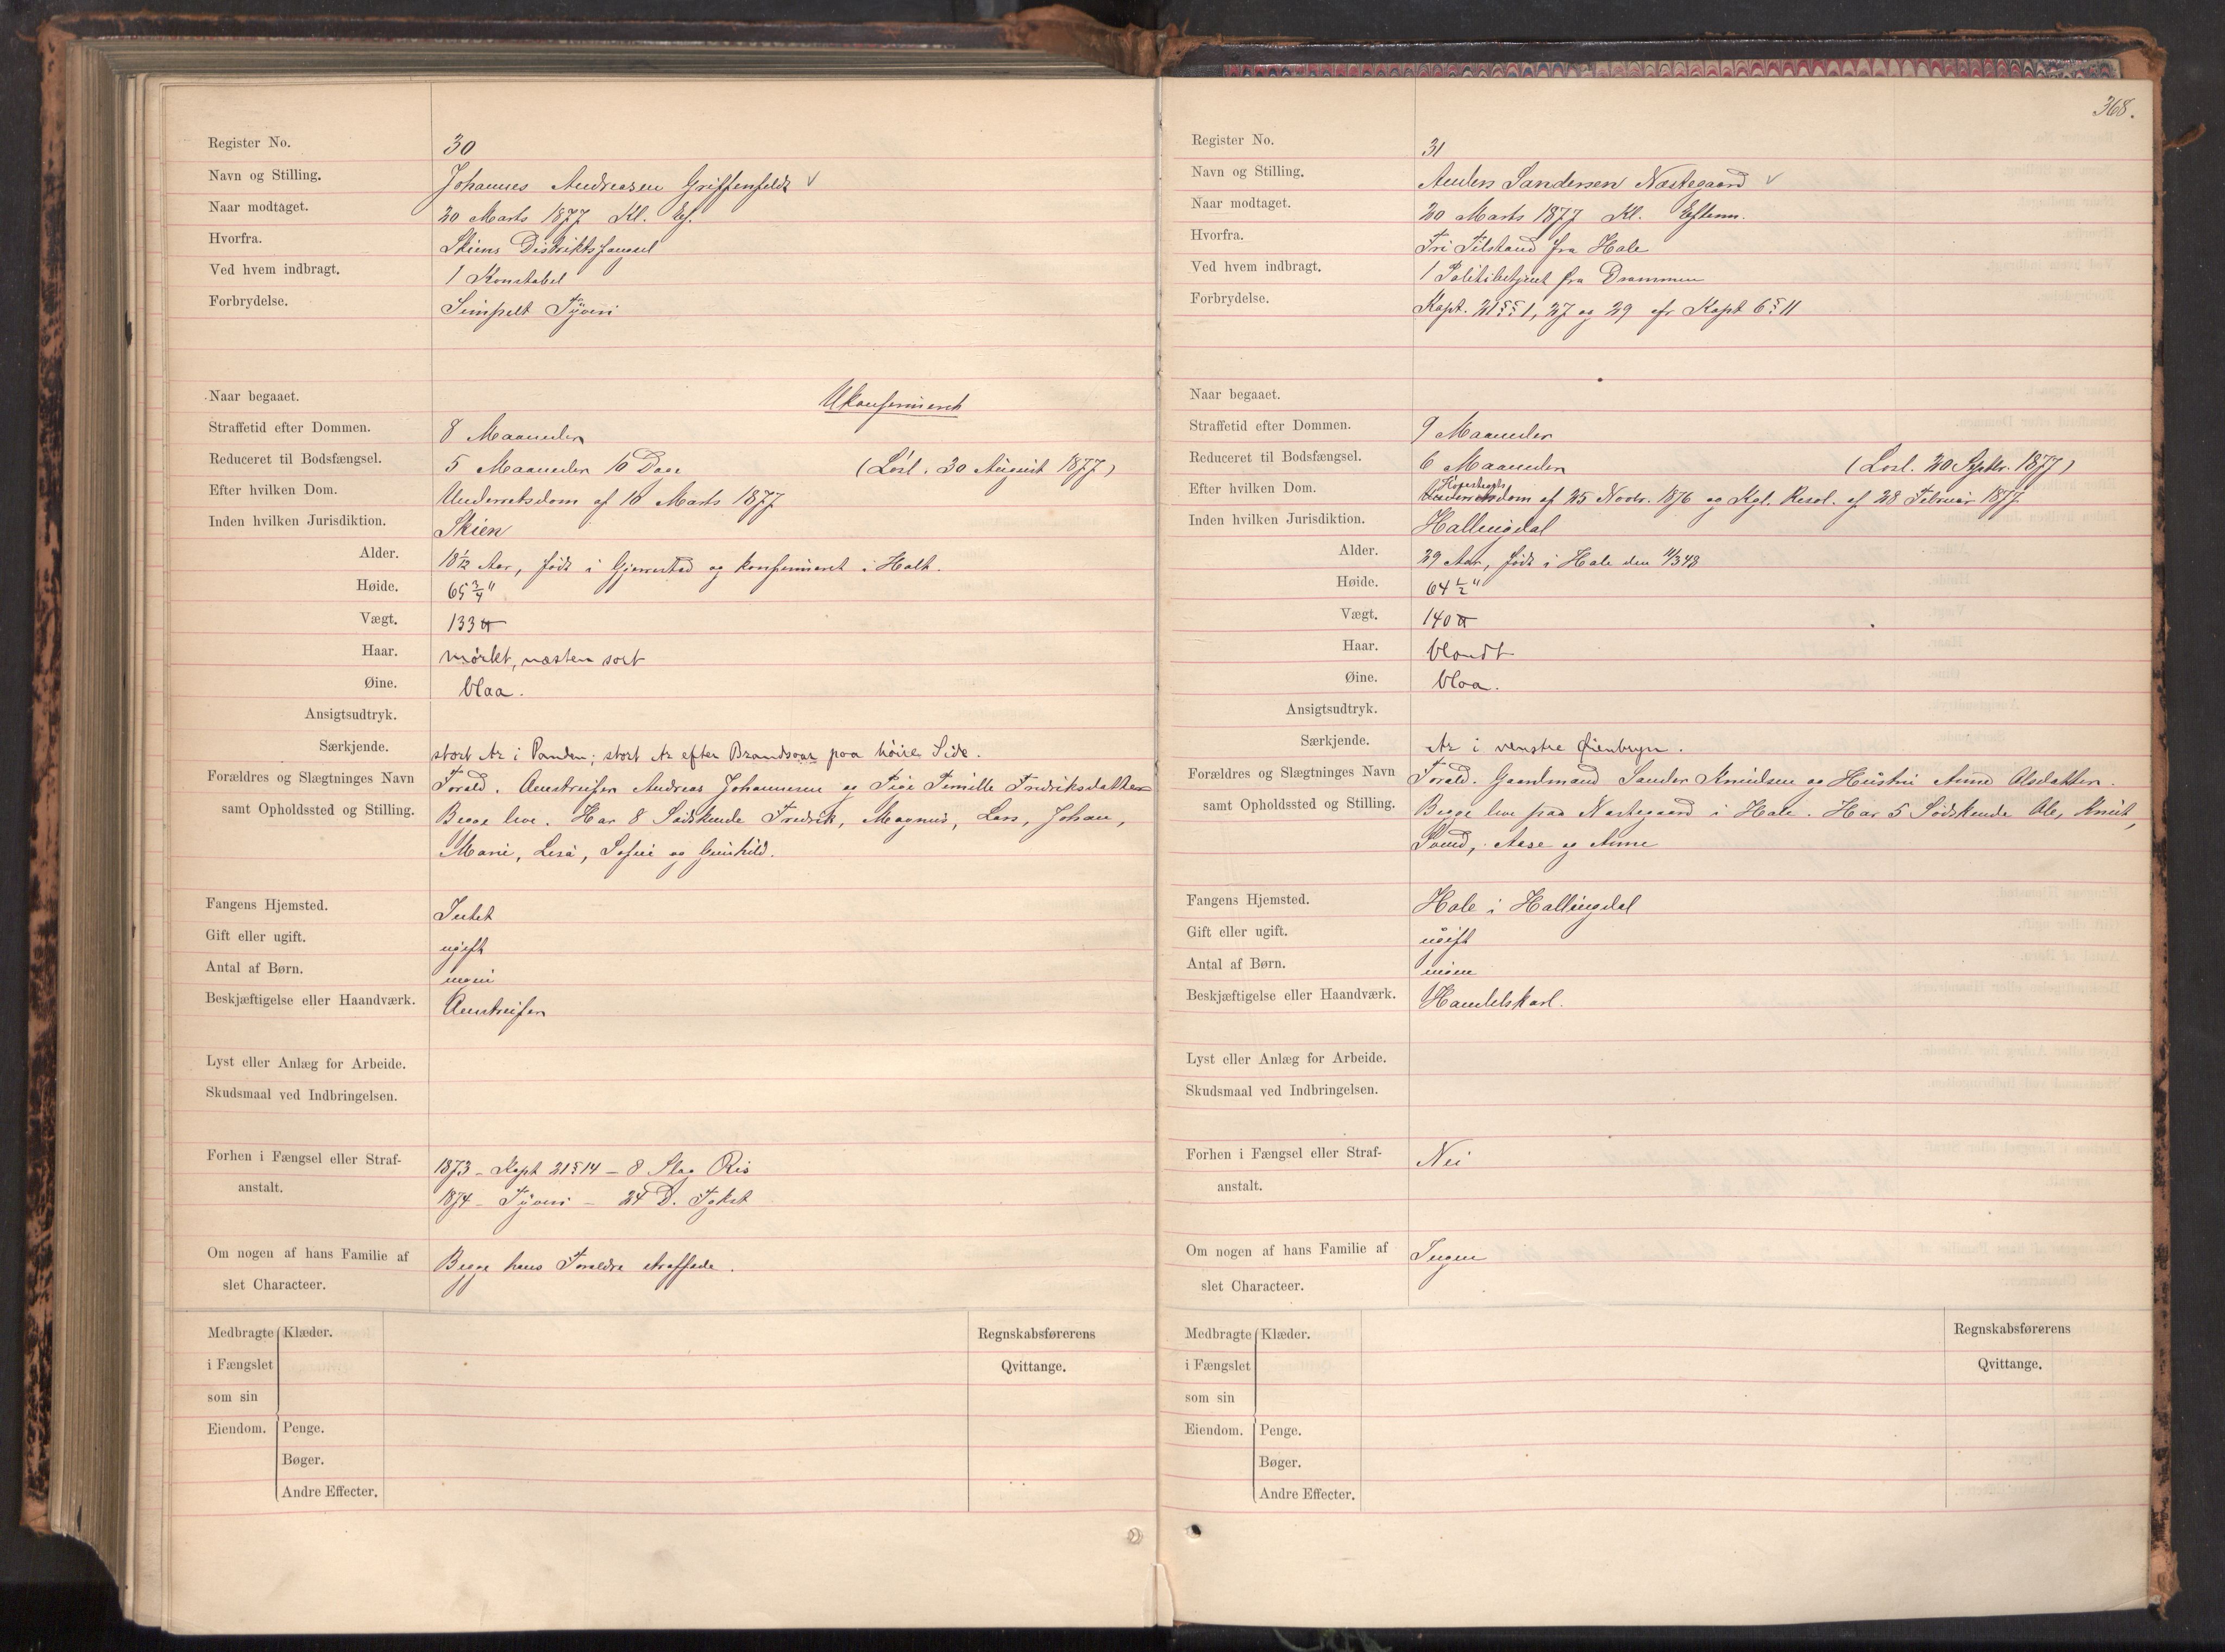 Register No. 30
Navn og Stilling. Johannes Andreasen Griffenfeldt
Naar modtaget. 20 Marts 1877 Kl. Ef.
Hvorfra. Skiens Distriktsfængsel
Ved hvem indbragt. 1 Konstabel
Forbrydelse. Simpelt Tyveri
Naar begaaet. Ukonfirmeret
Straffetid efter Dommen. 8 Maaneder
Reduceret til Bodsfængsel. 5 Maaneder 10 Dage (Løsl. 30 August 1877)
Efter hvilken Dom. Underretsdom af 10 Marts 1877
Inden hvilken Jurisdiktion. Skien
Alder. 18 1/12 Aar, født i Gjerrestad og konfirmeret i Holt.
Høide. 65 3/4"
Vægt. 133 ℔
Haar. mørkt, næsten sort
Øine. blaa.
Ansigtsudtryk.
Særkjende. stort Ar i Panden; stort Ar efter Brandsaar paa høire Side.
Forældres og Slægtninges Navn Foræld. Omstreifer Andreas Johannesen og Pige Pernille Fredriksdatter
samt Opholdssted og Stilling. Begge leve. Har 8 Sødskende Fredrik, Magnus, Lars, Johan,
Marie, Lisa, Sofie og Gunhild.
Fangens Hjemsted. Intet
Gift eller ugift. ugift
Antal af Børn. ingen
Beskjæftigelse eller Haandværk. Omstreifer
Lyst eller Anlæg for Arbeide.
Skudsmaal ved Indbringelsen.
Forhen i Fængsel eller Straf- 1873 – Kapt 21 § 14 – 8 Slag Ris
anstalt. 1874 – Tyveri – 24 D. Fgkst
Om nogen af hans Familie af Begge hans Forældre straffede.
slet Characteer.
Medbragte Klæder. Regnskabsførerens
i Fængslet Qvittange.
som sin
Eiendom. Penge.
Bøger.
Andre Effecter.
368.
Register No. 31
Navn og Stilling. Anders Sandersen Næstegaard
Naar modtaget. 20 Marts 1877 Kl. Efterm.
Hvorfra. Fri Tilstand fra Hole
Ved hvem indbragt. 1 Politibetjent fra Drammen
Forbrydelse. Kapt. 21 §§ 1, 27 og 29 cfr Kapt 6 § 11
Naar begaaet.
Straffetid efter Dommen. 9 Maaneder
Reduceret til Bodsfængsel. 6 Maaneder (Løsl. 20 Septbr. 1877)
Efter hvilken Dom. Høiesteretsdom af 25 Novbr. 1876 og Kgl. Resol. af 28 Februar 1877
Inden hvilken Jurisdiktion. Hallingdal
Alder. 29 Aar, født i Hole den 11/3 48
Høide. 64 1/2"
Vægt. 140 ℔
Haar. blondt
Øine. blaa.
Ansigtsudtryk.
Særkjende. Ar i venstre Øienbryn.
Forældres og Slægtninges Navn Foræld. Gaardmand Sander Knudsen og Hustru Anne Olsdatter.
samt Opholdssted og Stilling. Begge leve paa Næstegaard i Hole. Har 5 Sødskende Ole, Knut,
Svend, Aase og Anne
Fangens Hjemsted. Hole i Hallingdal
Gift eller ugift. ugift
Antal af Børn. ingen
Beskjæftigelse eller Haandværk. Handelskarl.
Lyst eller Anlæg for Arbeide.
Skudsmaal ved Indbringelsen.
Forhen i Fængsel eller Straf- Nei
anstalt.
Om nogen af hans Familie af Ingen
slet Characteer.
Medbragte Klæder. Regnskabsførerens
i Fængslet Qvittange.
som sin
Eiendom. Penge.
Bøger.
Andre Effecter.